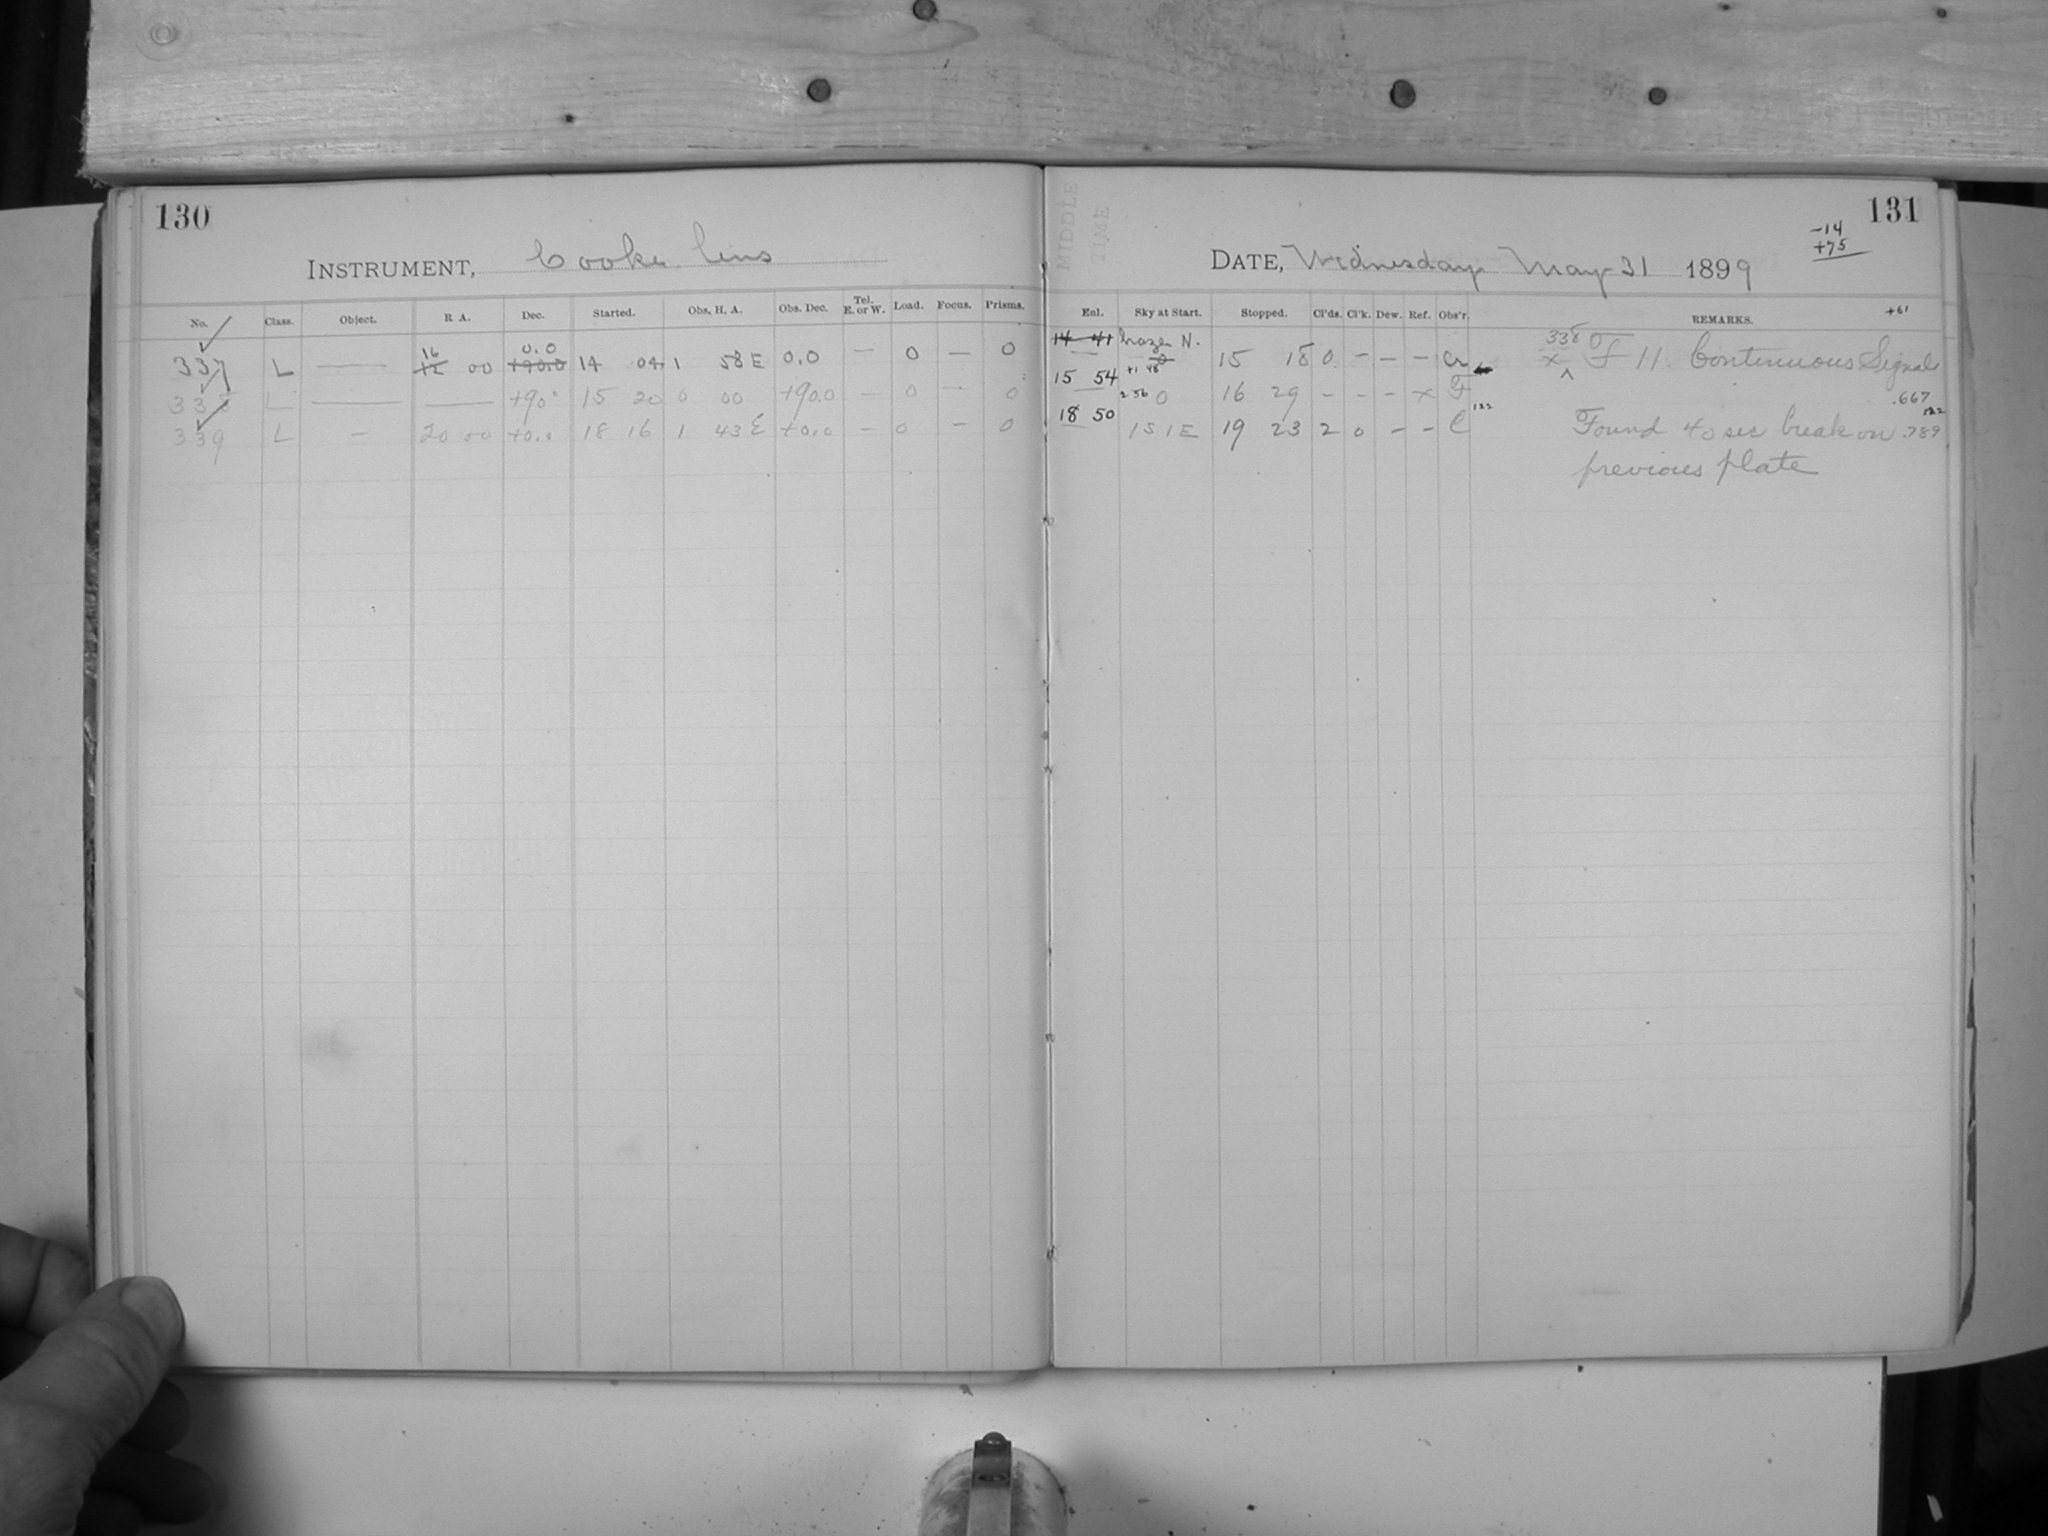 130
INSTRUMENT, Cooke lens
No. Class. Object. R. A. Dec. Started. Obs. H. A. Obs. Dec. Tel. E. or W. Load. Focus. Prisms.
337 L — 16 12 00 0.0 +90.0 14 04 1 58 E 0.0 — 0 — 0
338 L — — +90° 15 20 0 00 +90.0 — 0 — 0
339 L — 20 00 +0.0 18 16 1 43 E +0.0 — 0 — 0
131
-14
+75
MIDDLE TIME
DATE, Wednesday May 31 1899
+61
Enl. Sky at Start. Stopped. Cl'ds. Cl'k. Dew. Ref. Obs'r. REMARKS.
14 41 hazy N. 338
15 18 0 — — — a x ^ F 11. Continuous Signal
15 54 +1 48 0
2.56 0 16 29 - - - x F .667
18 50 122 122
151E 19 23 2 0 - - C Found 40 sec break on .789
previous plate